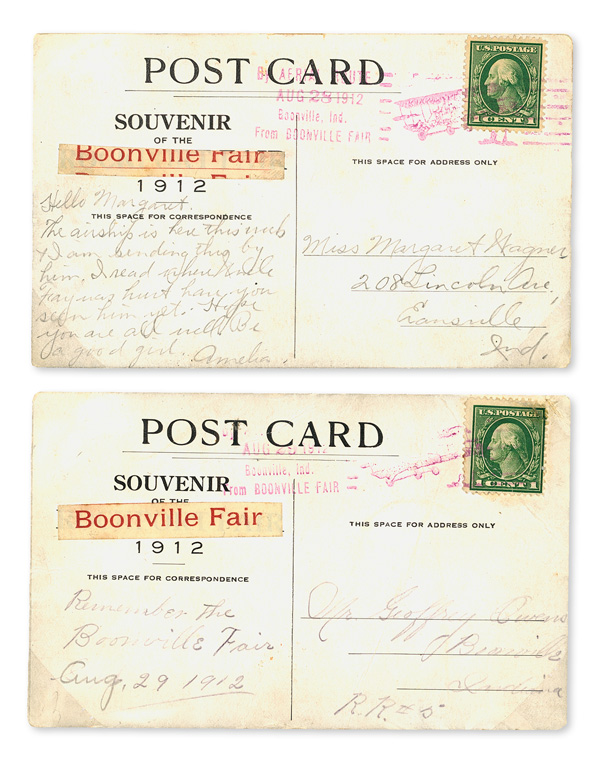 POST CARD
U.S. POSTAGE
1 CENT 1
BY AERIAL ROUTE
AUG 28 1912
Boonville, Ind.
From BOONVILLE FAIR
SOUVENIR
OF THE
Boonville Fair
Boonville Fair
1912
THIS SPACE FOR ADDRESS ONLY
THIS SPACE FOR CORRESPONDENCE
Hello Margaret.
The airship is here this week
& I am sending this by
him. I read where Uncle
was hurt have you
seen him yet. Hope
you are all well. Be
a good girl. Amelia.
Miss Margaret Wagner
208 Lincoln Ave,
Evansville
Ind.
POST CARD
U.S. POSTAGE
1 CENT 1
AUG 29 1912
Boonville, Ind.
From BOONVILLE FAIR
SOUVENIR
OF THE
Boonville Fair
1912
THIS SPACE FOR ADDRESS ONLY
THIS SPACE FOR CORRESPONDENCE
Remember the
Boonville Fair
Aug, 29 1912
Mr. Geoffrey Owens
Boonville
Indiana
R.R. # 5